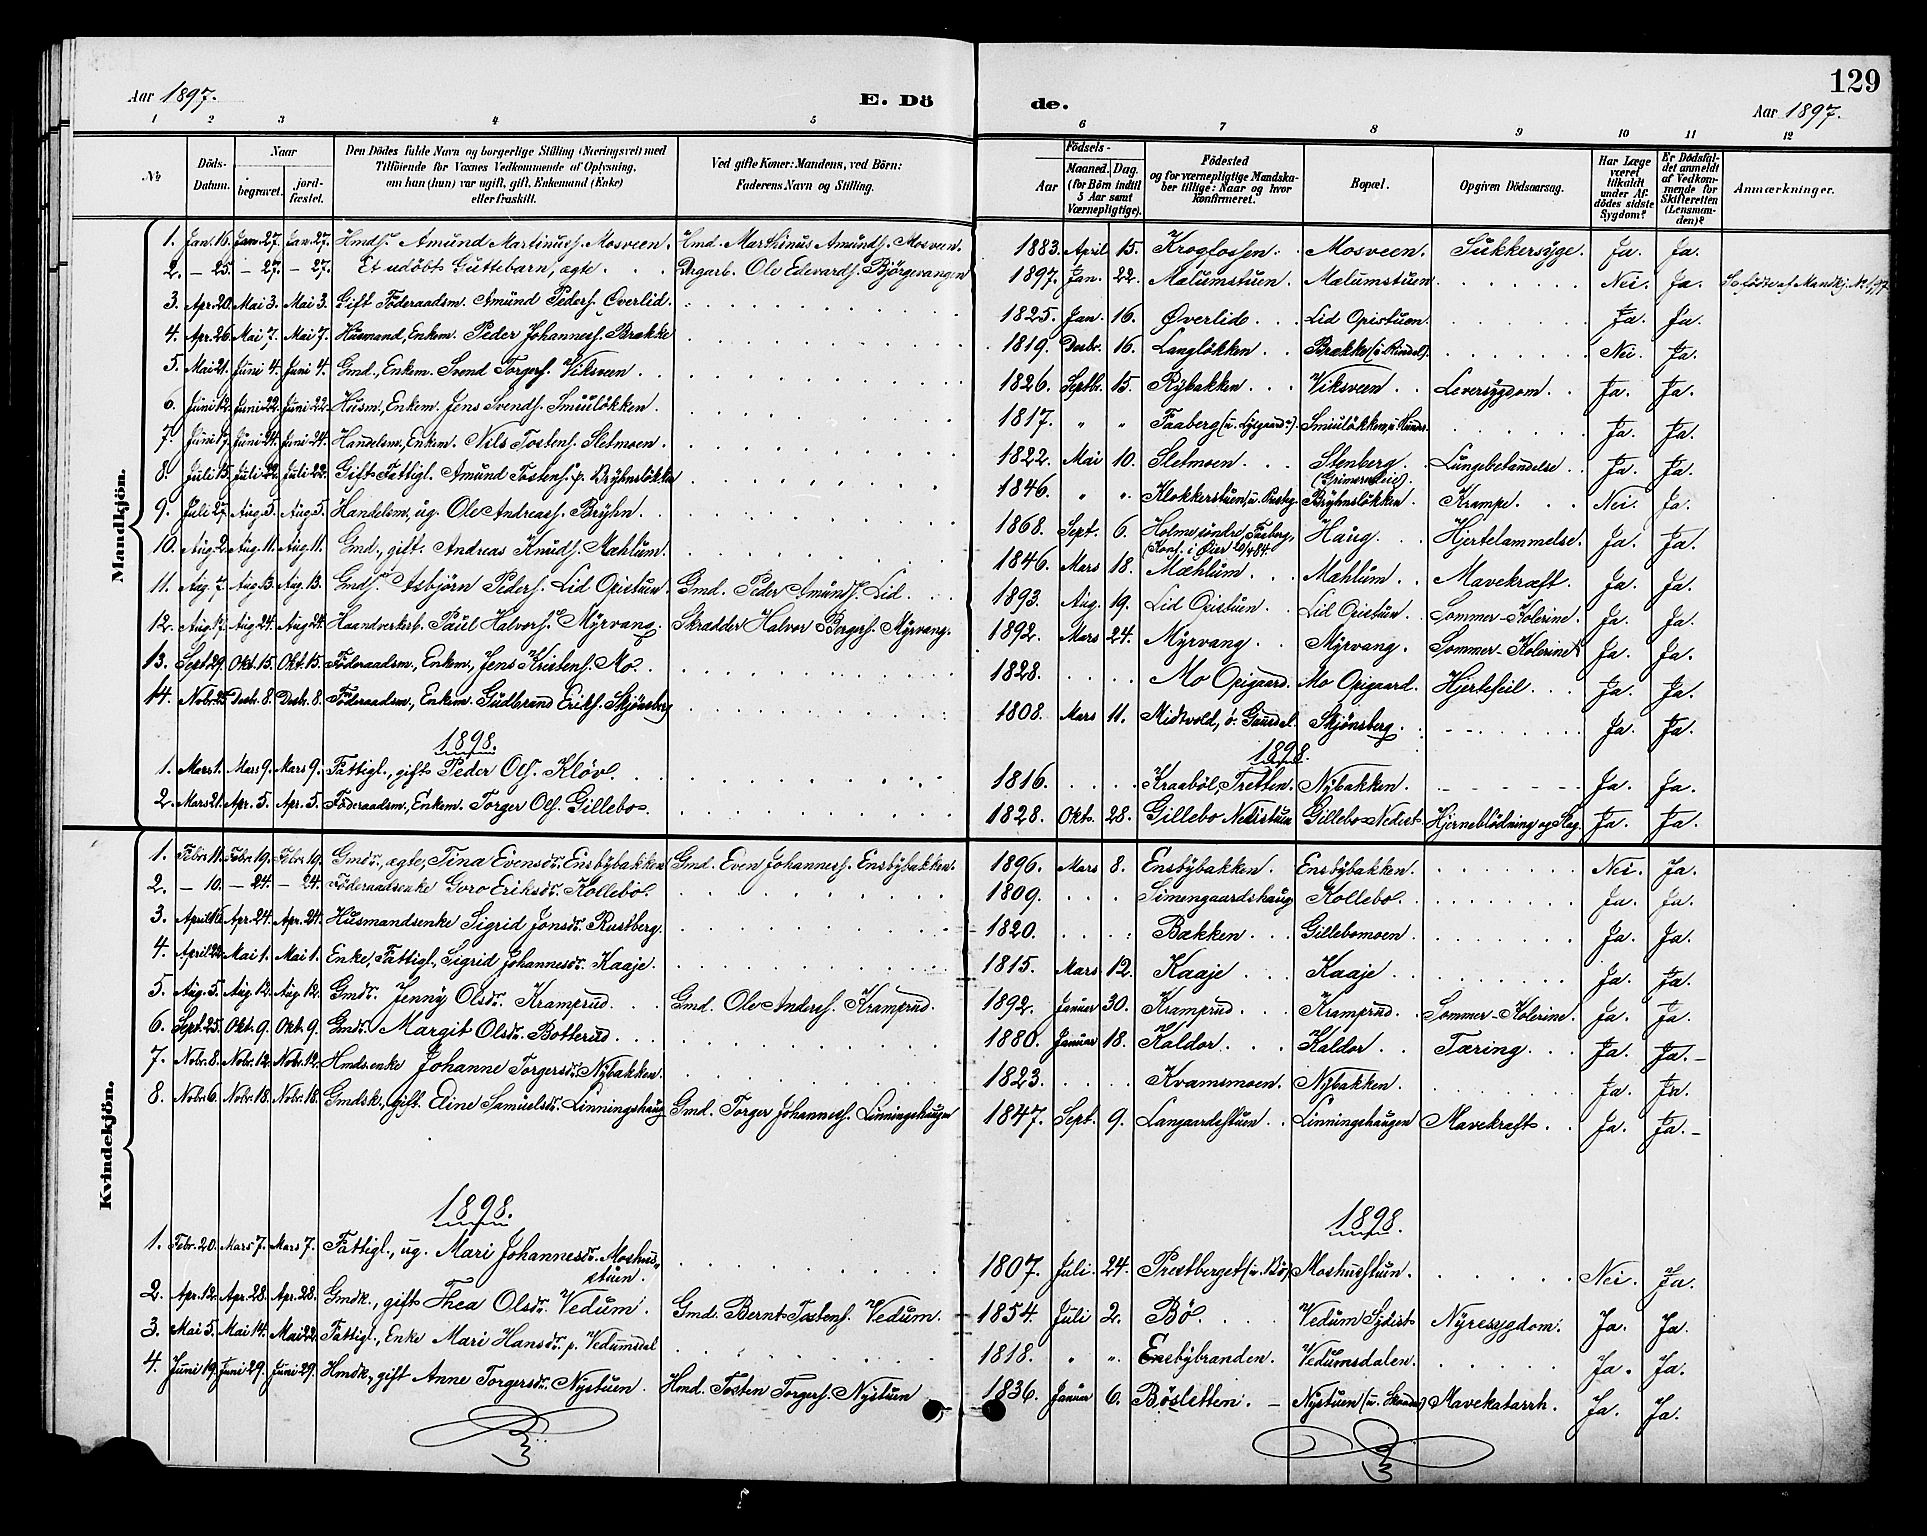 129
Aar 1897.
E. Dö
de.
Aar 1897.
1 2 3 4 5 6 7 8 9 10 11 12
№
Döds-Datum.
Naar
begravet.
jord-fæstet.
Den Dödes fulde Navn og borgerlige Stilling (Næringsvei) med Tilföiende for Voxnes Vedkommende af Oplysning, om han (hun) var ugift, gift, Enkemand (Enke) eller fraskilt.
Ved gifte Koner: Mandens, ved Börn: Faderens Navn og Stilling.
Födsels-
Aar
Maaned. Dag.
(for Börn indtil 5 Aar samt Værnepligtige).
Födested og for værnepligtige Mandskaber tillige: Naar og hvor konfirmeret.
Bopæl.
Opgiven Dödsaarsag.
Har Læge været tilkaldt under Afdödes sidste Sygdom?
Er Dödsfaldet anmeldt af Vedkommende for Skifteretten (Lensmanden)?
Anmærkninger.
Mandkjön.
1. Jan. 16. Jan. 27. Jan. 27. Hmds. Amund Martinuss. Mosveen. Hmd. Marthinus Amunds. Mosveen. 1883. April 15. Krogfossen. Mosveen. Sukkersyge. Ja. Ja.
2. – 25. – 27. – 27. Et udöbt Guttebarn, ægte. Ole Edevards. Björgevangen 1897. Jan. 22. Mælumstuen. Mælumstuen. Nei. Ja.
3. Apr. 20. Mai 3. Mai 3. Gift Föderaadsm. Amund Peders. Överlid. 1825. Jan. 16. Øverlid. Lid Opistuen. Ja. Ja.
4. Apr. 26. Mai 7. Mai 7. Husmand, Enkem. Peder Johanness. Brække 1819. Desbr. 16. Langlökken. Brække (u. Rindal). Nei. Ja.
5. Mai 21. Juni 4. Juni 4. Gmd., Enkem. Svend Torgers. Viksveen. 1826. Septb. 15. Rybakken. Viksveen. Leversygdom. Ja. Ja.
6. Juni 12. Juni 22. Juni 22. Husm., Enkem. Jens Svends. Smuulökken. 1817. " " Faaberg Smuulökken, Ja. Ja.
7. Juni 17. Juni 24. Juni 24. Handelsm, Enkem. Nils Tostens. Sletmoen. 1822. Mai 10. Sletmoen. Stenberg. Lungebetændelse. Ja. Ja.
8. Juli 15. Juli 22. Juli 22. Gift Fattigl. Amund Tostens. p. Bryhnslökken 1846. " " Klokkerstuen, Bryhnslökken. Krampe. Nei. Ja.
9. Juli 27. Aug. 5. Aug. 5. Handelsm, ug. Ole Andreass. Bryhn. 1868. Sept. 6. Holme söndre, Faaberg, Haug. Hjertelammelse. Ja. Ja.
10. Aug. 2. Aug. 11. Aug. 11. Gmd., gift. Andreas Knuds. Mæhlum. 1846. Mars 18. Mæhlum. Mæhlum. Mavekræft. Ja. Ja.
11. Aug. 7. Aug. 13. Aug. 13. Gmds. Asbjörn Peders. Lid Opistuen Gmd. Peder Amunds. Lid. 1893. Aug. 19. Lid Opistuen. Lid Opistuen. Sommer-Kolerine. Ja. Ja.
12. Aug. 17. Aug. 24. Aug. 24. Haandverkss. Paul Halvors. Myrvang. Skrædder Halvor Bergers. Myrvang. 1892. Mars 24. Myrvang. Myrvang. Sommer-Kolerine. Ja. Ja.
13. Sept. 29. Okt. 15. Okt. 15. Föderaadsm., Enkem., Jens Kristens. Mo. 1828. Mo Opigaard. Mo Opigaard. Hjertefeil. Ja. Ja.
14. Nobr. 25. Desb. 8. Desb. 8. Föderaadsm., Enkem. Gudbrand Eriks. Skjönsberg 1808. Mars 11. Midtvold, ö. Gausdal. Skjönsberg. Ja. Ja.
1898.
1898.
1. Mars 1. Mars 9. Mars 9. Fattigl., gift Peder Ols. Klöv. 1816. Kraaböl, Tretten. Nybakken. Ja. Ja.
2. Mars 21. Apr. 5. Apr. 5. Föderaadsm., Enkem. Torger Ols. Gillebo. 1828. Okt. 28. Gillebo Nedistuen Gillebo Nedist Hjerneblödning og Slag. Ja. Ja.
Kvindekjön.
1. Febr. 11. Febr. 19. Febr. 19. Gmdsd., ægte, Tina Evensdr. Ensbybakken Gmd. Even Johanness. Ensbybakken. 1896. Mars 8. Ensbybakken. Ensbybakken. Nei. Ja.
2. – 10. – 24. – 24. Föderaadsenke Goro Eriksdr. Kollebo. 1809. Simengaardshaug Kollebo. Ja. Ja.
3. April 16. Apr. 24. Apr. 24. Husmandsenke Sigrid Jonsdr. Rustberg. 1820. Bækken. Gillebomoen. Ja. Ja.
4. April 22. Mai 1. Mai 1. Enke, Fattigl., Sigrid Johannesdr. Kaaje. 1815. Mars 12. Kaaje. Kaaje. Ja. Ja.
5. Aug. 5. Aug. 12. Aug. 12. Gmdsd. Jenny Olsdr. Kramprud. Gmd. Ole Anderss. Kramprud. 1892. Januar 30. Kramprud. Kramprud. Sommer-Kolerine. Ja. Ja.
6. Sept. 25. Okt. 9. Okt. 9. Gmdsd. Margit Olsdr. Botterud. 1880. Januar 18. Kaldor. Kaldor. Tæring. Ja. Ja.–
7. Nobr. 8. Nobr. 12. Nobr. 12. Hmdsenke Johanne Torgersdr. Nybakken. 1823. Kvamsmoen. Nybakken. Ja. Ja.
8. Nobr. 6. Nobr. 18. Nobr. 18. Gmdsk., gift. Eline Samuelsdr. Linningshaug Gmd. Torger Johanness. Linningshaugen 1847. Sept. 9. Langaardsstuen. Linningshaugen Mavekræft. Ja. Ja.–
1898.
1898.
1. Febr. 20. Mars 7. Mars 7. Fattigl., ug. Mari Johannesdr. Moshus-
stuen. 1807. Juli. 24. Prestberget (u. Bö) Moshusstuen. Nei. Ja.
2. Apr. 12. Apr. 28. Apr. 28. Gmdk., gift Thea Olsdr. Vedum. Gmd. Bernt Tostens. Vedum. 1854. Juli 2. Bö. Vedum Sydist Nyresygdom. Ja. Ja.
3. Mai 5. Mai 14. Mai 22. Fattigl., Enke Mari Hansdr. p. Vedumsdal 1818. " " Ensbybranden. Vedumsdalen. Ja. Ja.
4. Juni 19. Juni 29. Juni 29. Hmdk., gift Anne Torgersdr. Nystuen. Hmd. Tosten Torgers. Nystuen 1836. Januar 6. Bösletten. – Nystuen Mavekatarrh. Ja. Ja.